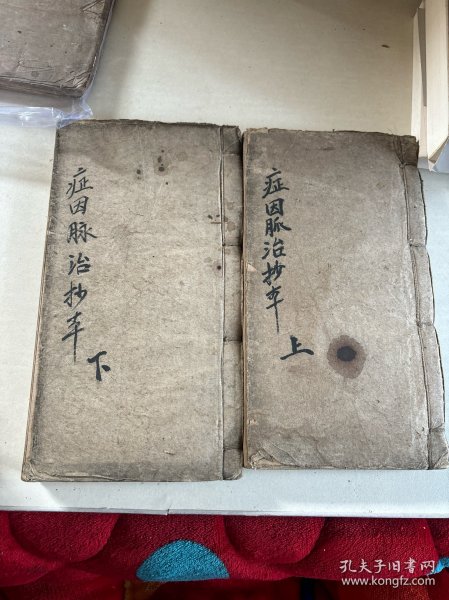 症因脉治抄本
下
症因脈治抄本
上
孔夫子旧书网
www.kongfz.com